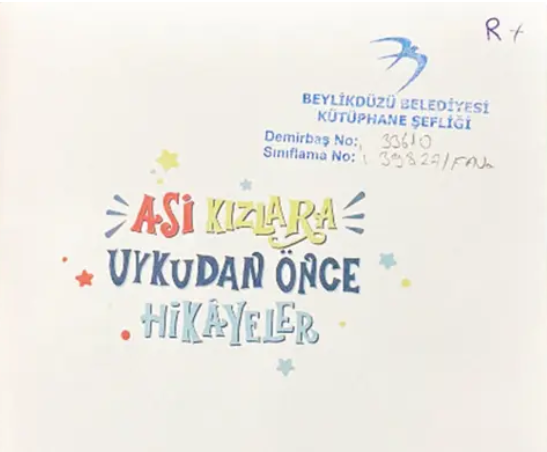 R+
BEYLİKDÜZÜ BELEDİYESİ
KÜTÜPHANE ŞEFLİĞİ
Demirbaş No: 33610
Sınıflama No:
ASİ KIZLARA
UYKUDAN ÖNCE
HİKÂYELER